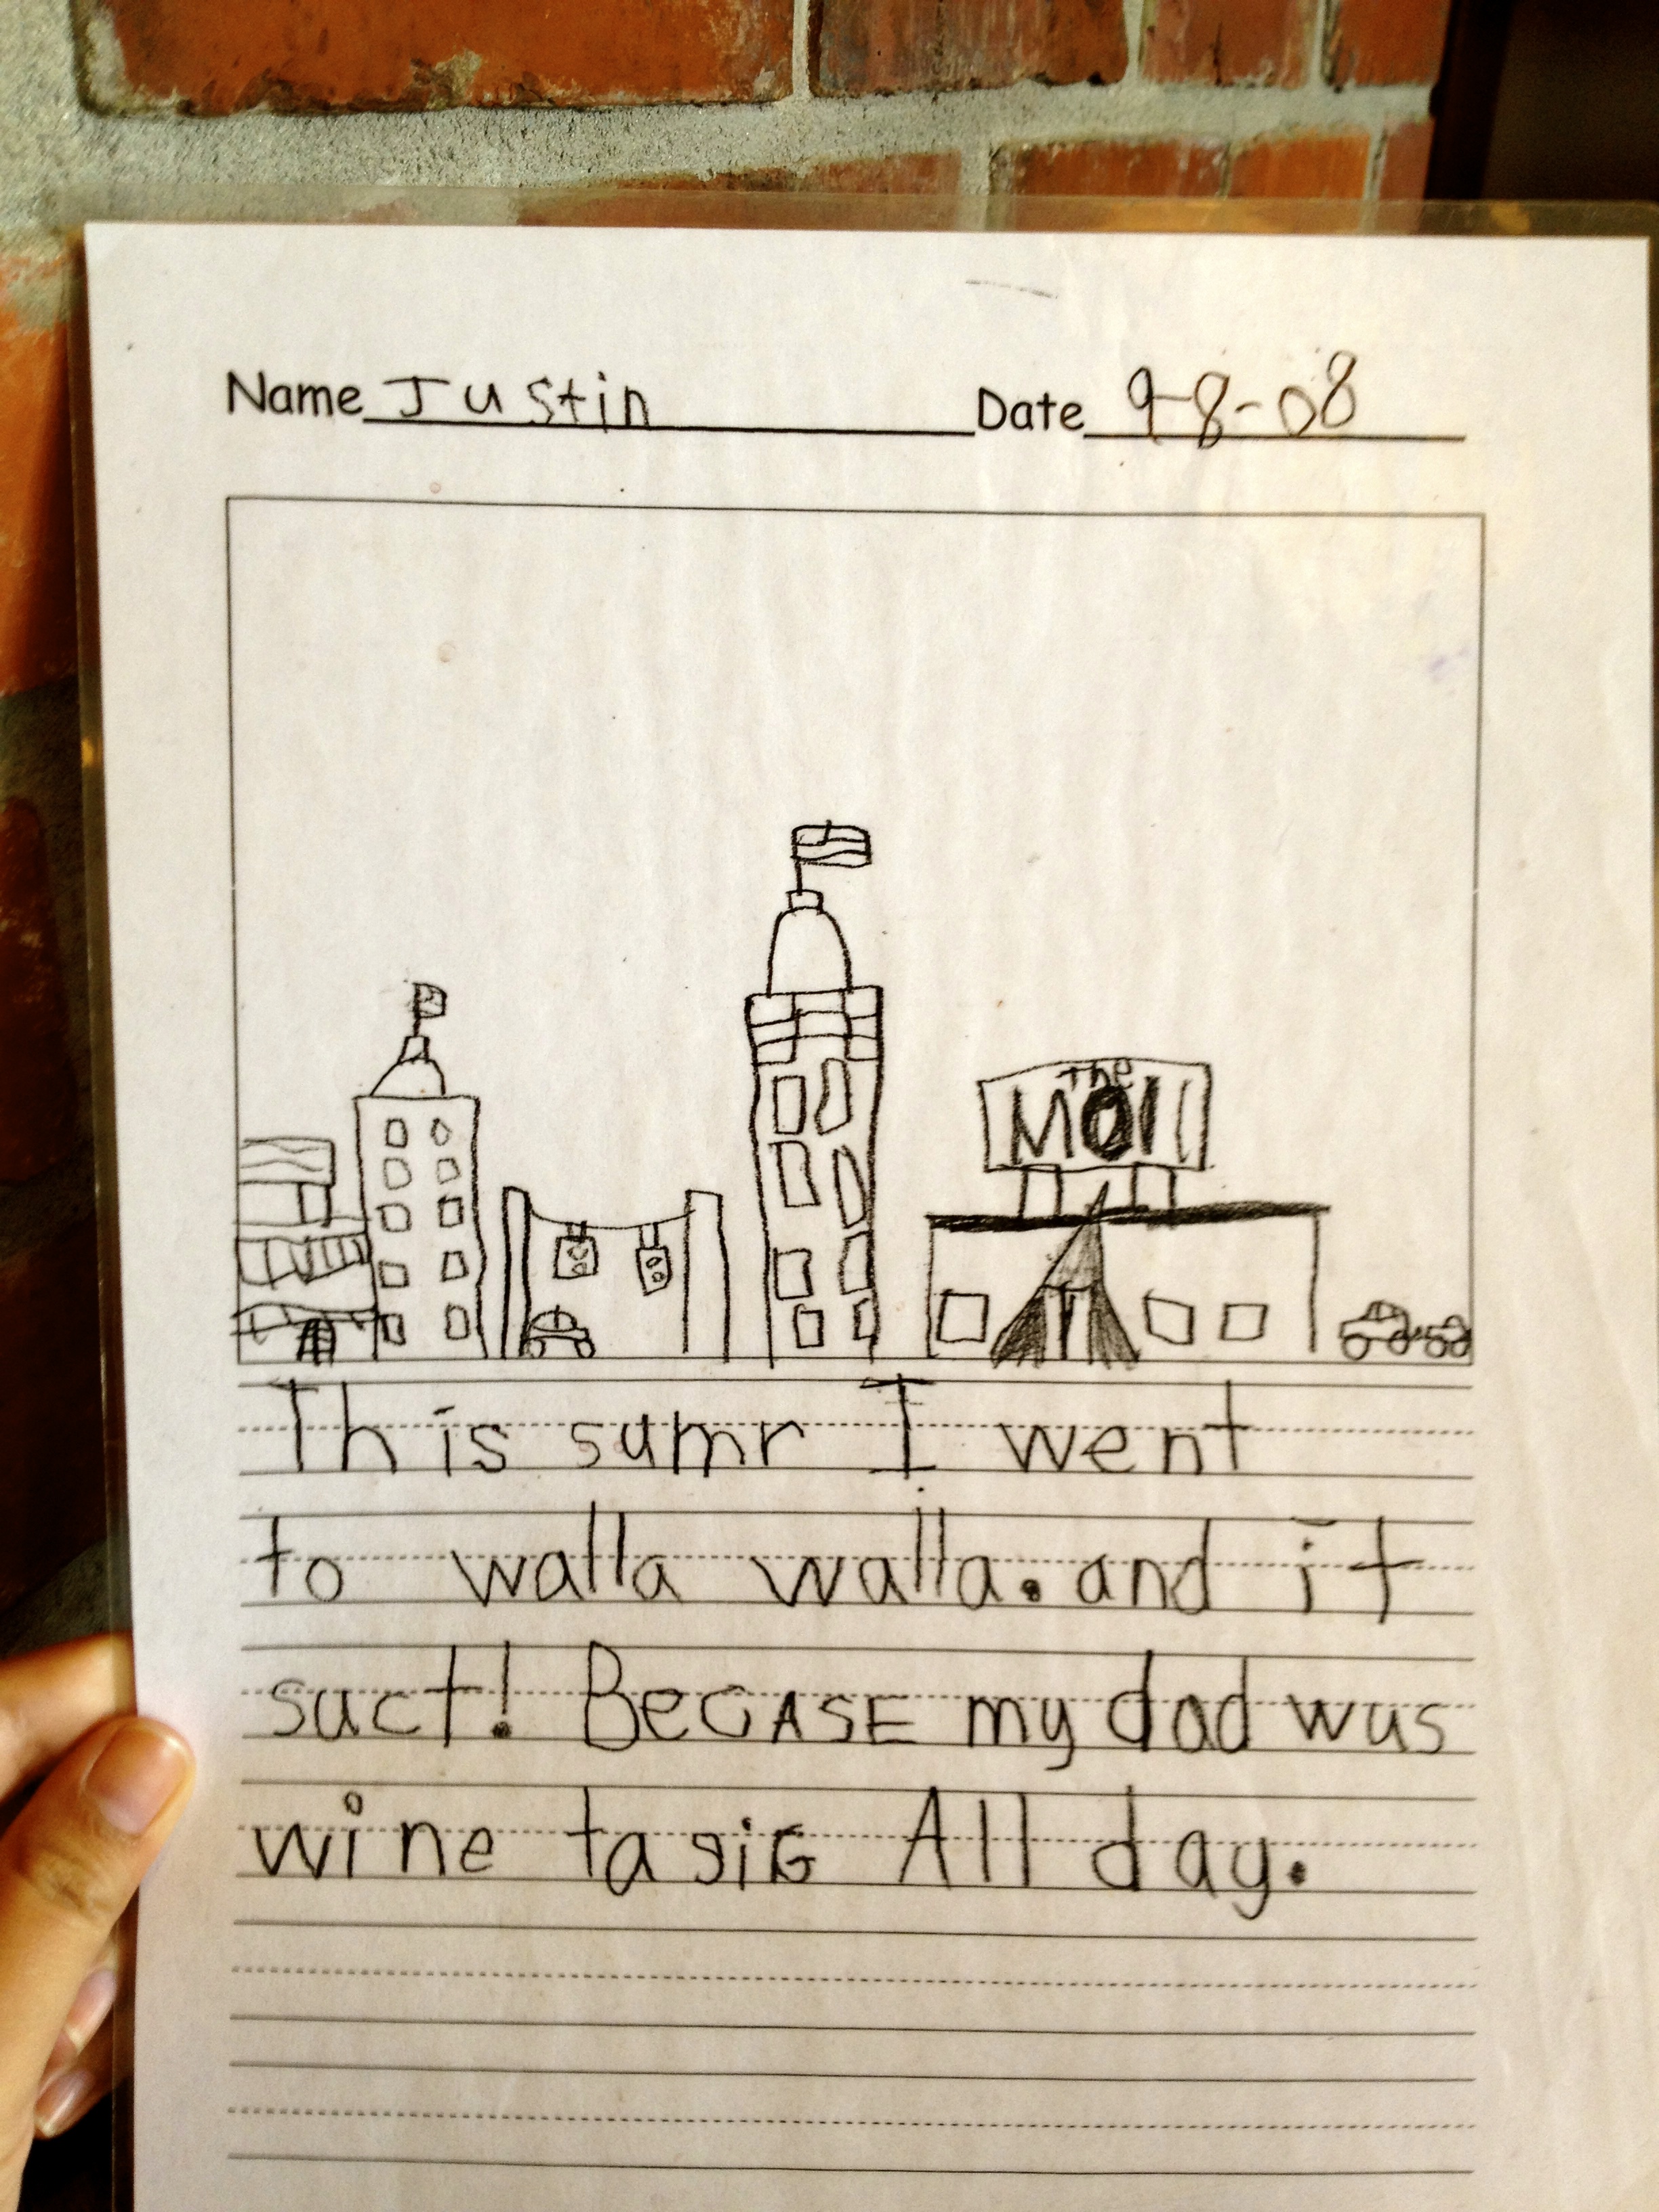 Name Justin Date 9-8-08
The
MOll
This sumr I went
to walla walla. and it
suct! BecASE my dad wus
wine tasiG All day.